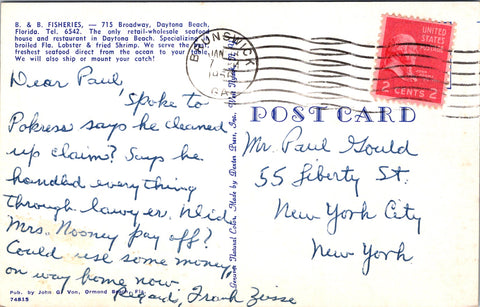 B. & B. FISHERIES, — 715 Broadway, Daytona Beach,
Florida. Tel. 6542. The only retail-wholesale seafood
house and restaurant in Daytona Beach. Specializing
broiled Fla. Lobster & fried Shrimp. We serve the
freshest seafood direct from the ocean to your table.
We will also ship or mount your catch!
BRUNSWICK
JAN
7
GA.
UNITED STATES POSTAGE
2 CENTS 2
Dear Paul,
Spoke to
Pokress says he cleaned
up claim? Says he
handled everything
through lawyer. Did
Mrs. Nooney pay off?
Could use some money
on way home now.
Regard, Frank
POST CARD
Mr. Paul Gould
55 Liberty St.
New York City
New York
Genuine Natural Color. Made by Dexter Press, Inc.
Pub. by John G. Von, Ormond Beach, Fla.
74815